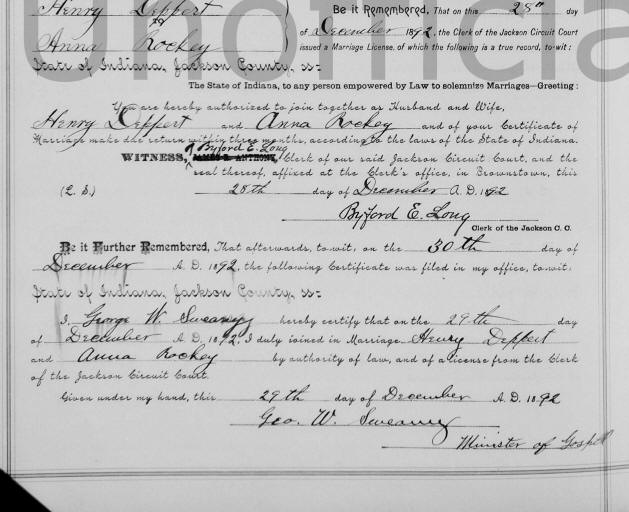 Unofficial
Henry Deppert
to
Anna Rockey
Be it Remembered, That on this 28th day
of December 1892, the Clerk of the Jackson Circuit Court
issued a Marriage License, of which the following is a true record, to-wit:
State of Indiana, Jackson County, ss:
The State of Indiana, to any person empowered by Law to solemnize Marriages—Greeting:
You are hereby authorized to join together as Husband and Wife,
Henry Deppert and Anna Rockey and of your Certificate of
Marriage make due return within three months, according to the laws of the State of Indiana.
Byford E. Long
WITNESS, JAMES B. ANTHONY, Clerk of our said Jackson Circuit Court, and the
seal thereof, affixed at the Clerk's office, in Brownstown, this
(L. S.) 28th day of December A. D. 1892
Byford E. Long
Clerk of the Jackson C. C.
Be it Further Remembered, That afterwards, to-wit, on the 30th day of
December A. D. 1892, the following Certificate was filed in my office, to-wit:
State of Indiana, Jackson County, ss:
I, George W. Sweany hereby certify that on the 29th day
of December A. D. 1892, I duly joined in Marriage Henry Deppert
and Anna Rockey by authority of law, and of a license from the Clerk
of the Jackson Circuit Court.
Given under my hand, this 29th day of December A. D. 1892
Geo. W. Sweany
Minister of Gospel